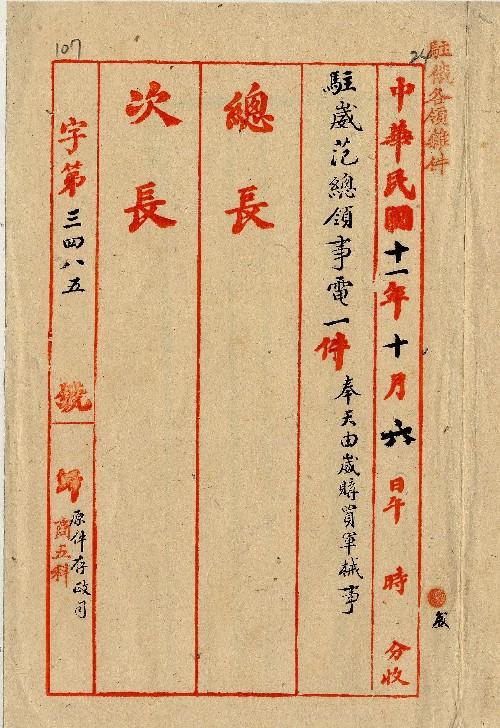 107
24
駐俄各領雜件
中華民國十一年十月六日午 時 分收
駐崴范總領事電一件 奉天由崴購買軍械事
總長
次長
字第三四八五號
歸商五科
原件存政司
崴